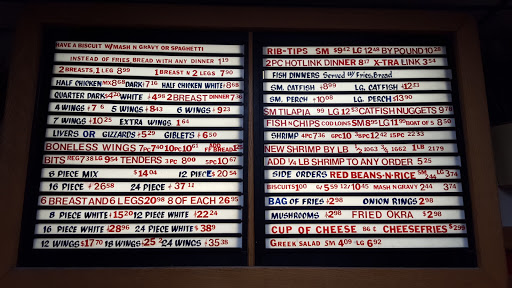 HAVE A BISCUIT W/MASH N GRAVY OR SPAGHETTI
INSTEAD OF FRIES, BREAD WITH ANY DINNER 1.19
2 BREASTS, 1 LEG 8.99 1 BREAST N 2 LEGS 7.90
HALF CHICKEN MIX 8.68 DARK 7.16 HALF CHICKEN WHITE 8.68
QUARTER DARK 4.20 WHITE 4.98 2 BREAST DINNER 7.36
4 WINGS 7.76 5 WINGS 8.43 6 WINGS 9.23
7 WINGS 10.25 EXTRA WING 1.64
LIVERS OR GIZZARDS 5.29 GIBLETS 6.50
BONELESS WINGS 7PC 7.40 10PC 10.61 ADD FF BREAD
BITS REG 7.38 LG 9.54 TENDERS 3PC 8.00 5PC 10.67
8 PIECE MIX $14.04 12 PIECE 20.54
16 PIECE 26.58 24 PIECE 37.11
6 BREAST AND 6 LEGS 20.98 8 OF EACH 26.95
8 PIECE WHITE 15.20 12 PIECE WHITE 22.24
16 PIECE WHITE 28.96 24 PIECE WHITE 38.9
12 WINGS 17.70 18 WINGS 25.2 24 WINGS 35.38
RIB-TIPS SM 9.42 LG 12.48 BY POUND 10.28
2PC HOTLINK DINNER 8.17 X-TRA LINK 3.54
FISH DINNERS Served w/ Fries, Bread
SM. CATFISH 8.99 LG. CATFISH 12.30
SM. PERCH 10.98 LG. PERCH 13.90
SM TILAPIA 9.99 LG 12.53 CATFISH NUGGETS 9.78
FISH N CHIPS COD LOINS SM 8.95 LG 11.99 BOAT OF 8.50
SHRIMP 4PC 7.36 6PC 10.30 8PC 12.42 15PC 22.33
NEW SHRIMP BY LB ½ 10.63 ¾ 16.62 1LB 21.79
ADD ¼ LB SHRIMP TO ANY ORDER 5.25
SIDE ORDERS RED BEANS-N-RICE SM 2.44 LG 3.74
BISCUITS 1.00 6/ 5.59 12/ 10.45 MASH N GRAVY 2.44 3.74
BAG OF FRIES 2.98 ONION RINGS 2.98
MUSHROOMS 2.98 FRIED OKRA 2.98
CUP OF CHEESE 86¢ CHEESEFRIES 2.99
GREEK SALAD SM 4.09 LG 6.92